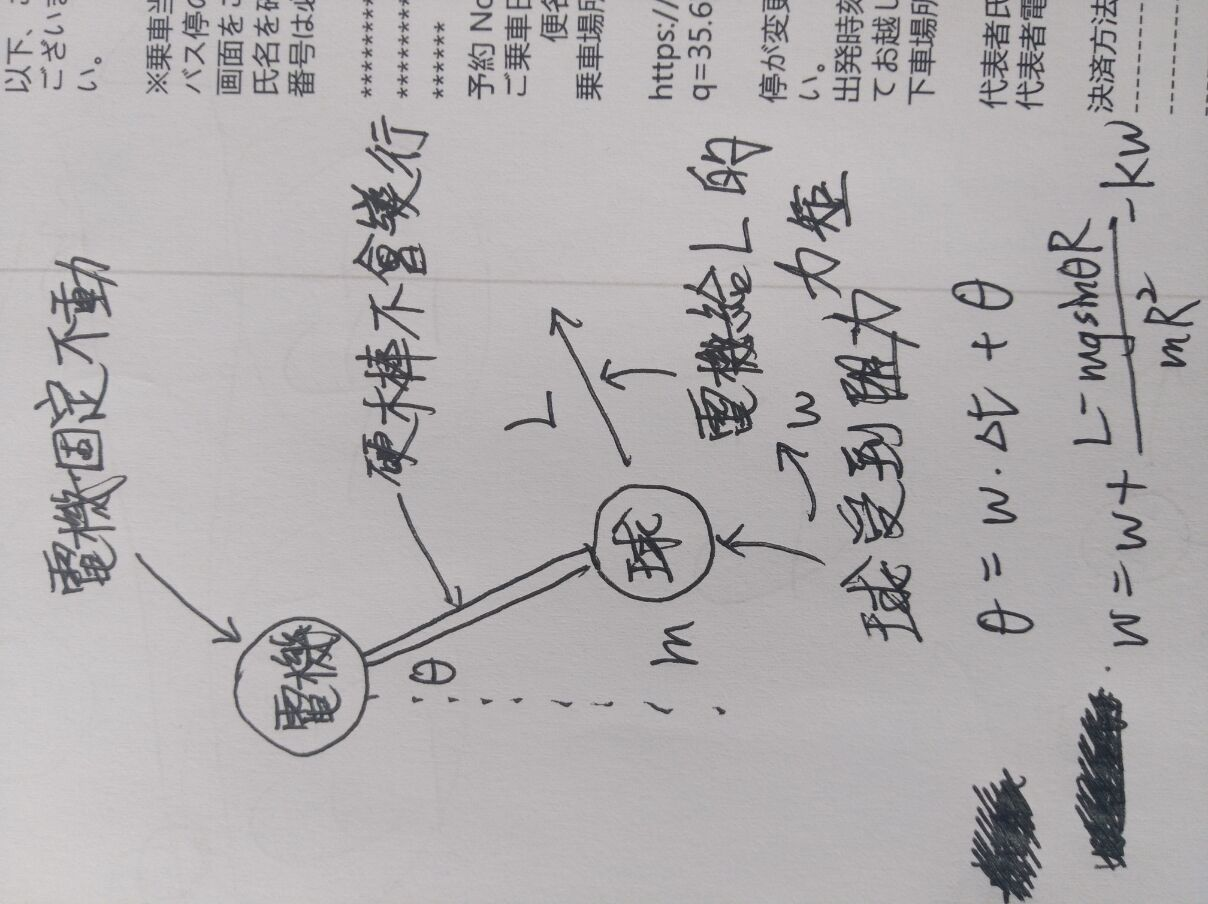 電機固定不動
電機
θ
硬木棒不會變行
球
m
L
電機給L的
力矩
w
球受到阻力
θ = w · Δt + θ
w = w + (L - mgsinθR) / mR² - kw
以下、
ございま
い。
※乗車当
バス停の
画面をご
氏名を確
番号は必
*********
*********
******
予約 No
ご乗車日
便名
乗車場所
https://
q=35.6
停が変更
い。
出発時刻
てお越し
下車場所
代表者氏
代表者電
決済方法